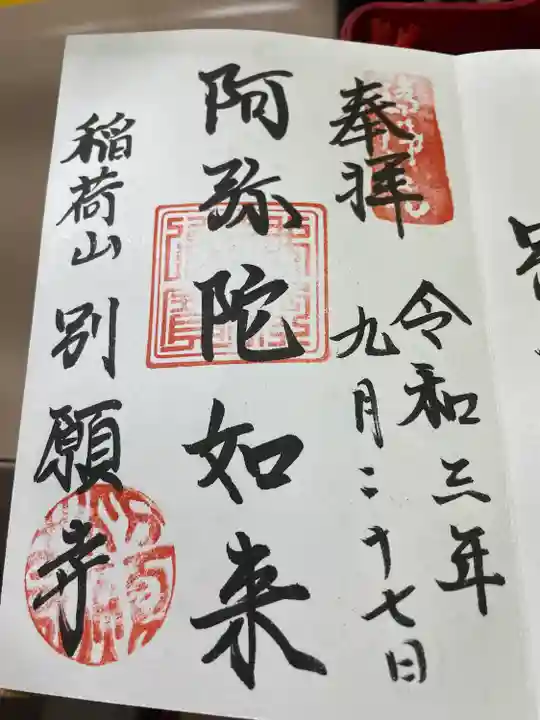 奉拝
令和三年
九月二十七日
阿弥陀如来
稲荷山別願寺